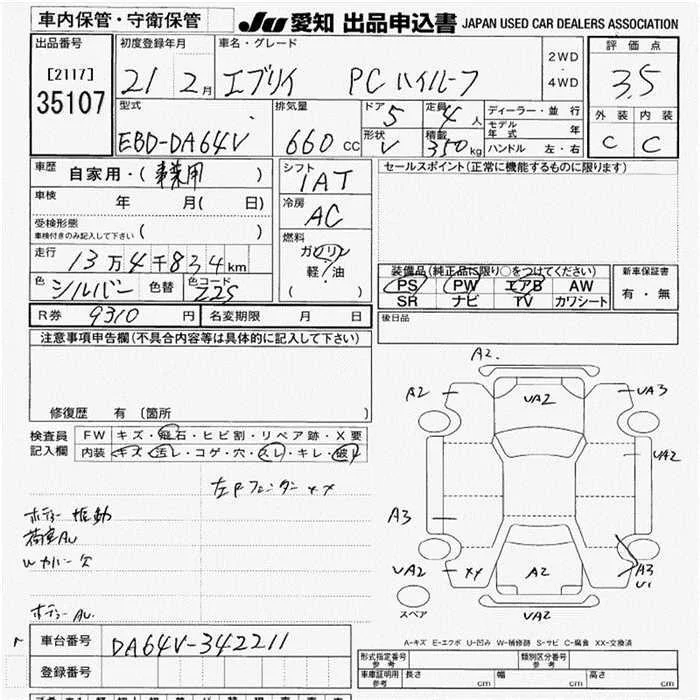 車内保管・守衛保管
JU 愛知 出品申込書 JAPAN USED CAR DEALERS ASSOCIATION
出品番号
[2117]
35107
初度登録年月
21 2月
車名・グレード
エブリイ PCハイルーフ
2WD
・
4WD
評価点
3.5
外装 内装
C C
型式
EBD-DA64V
排気量
660cc
ドア 5
定員 4人
形状 V
積載 350kg
ディーラー・並行
モデル年式 年
ハンドル 左・右
車歴 自家用・(事業用)
車検 年 月( 日)
受検形態
車検付きのみ記入して下さい ( )
走行 13万4千834km
色 シルバー 色替 色コード Z2S
シフト
IAT
冷房
AC
燃料
ガソリン
軽油
( )
セールスポイント(正常に機能するものに限ります)
装備品(純正品に限り○をつけてください)
PS PW エアB AW
SR ナビ TV カワシート
新車保証書
有・無
R券 9310円 名変期限 月 日
後日品
注意事項申告欄(不具合内容等は具体的に記入して下さい)
修復歴 有 〔箇所 〕
検査員記入欄
FW キズ・飛石・ヒビ割・リペア跡・X要
内装 キズ・汚レ・コゲ・穴・スレ・キレ・破レ
左Fフェンダー XX
ボディー 振動
荷室AU
Wカバー欠
ボディーAU.
A2.
A2
UA2
UA3
UA2
A3
UA2
XX
A2
A3
U1
UA2
スペア
A-キズ E-エクボ U-凹み W-補修跡 S-サビ C-腐食 XX-交換済
車台番号 DA64V-342211
登録番号
形式指定番号 参考
類別区分番号 参考
車庫証明用 参考 長さ cm 幅 cm 高さ cm